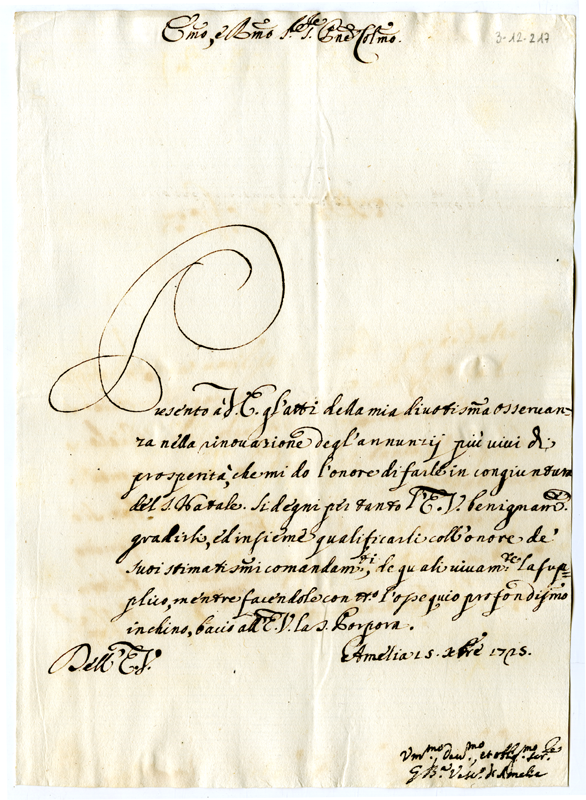 Emo, e Rmo Sig.re Sig.re Pne Colmo.
3-12-217
Presento à V.E. gl'atti della mia diuotissma osseruan=
za nella rinouazione degl'annunzij più viui di
prosperità, che mi dò l'onore di farle in congiuntura
del S. Natale. Si degni per tanto l'E.V. benignam.te
gradirli, ed insieme qualificarli coll'onore de'
suoi stimatissmi comandam.ti, de quali viuam.te la sup=
plico, mentre facendole con tto l'ossequio profondissmo
inchino, bacio all'E.V. la S. Porpora.
Dell'E.V.
Amelia 15. Xbre 1725.
Vm.mo, deu.mo, et obblig.mo Ser.e
G. B.a Vesc.o di Amelia